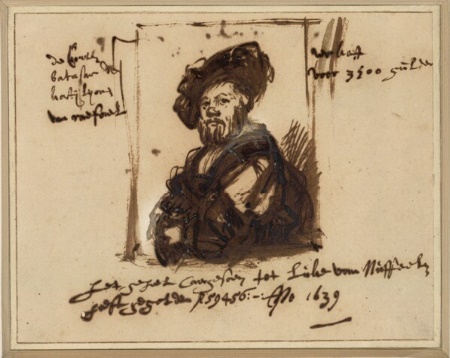 de Conte
batasar de
kastijlijone
van rafael
verkoft
voor 3500 gulden
het geheel caergesoen tot Luke van Nuffeelen
heeft gegolden f 59456:-: Ano 1639